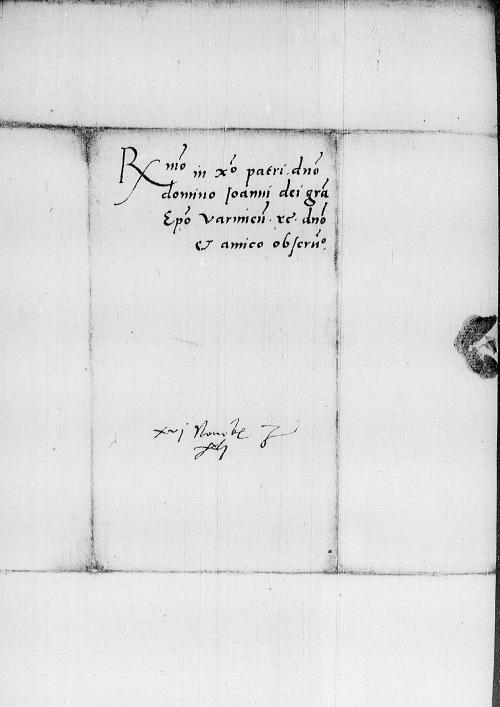 Rmo in xpo patri dno
domino Ioanni dei gra
Epo Varmien. &c. dno
et amico observo.
xvj Novebr